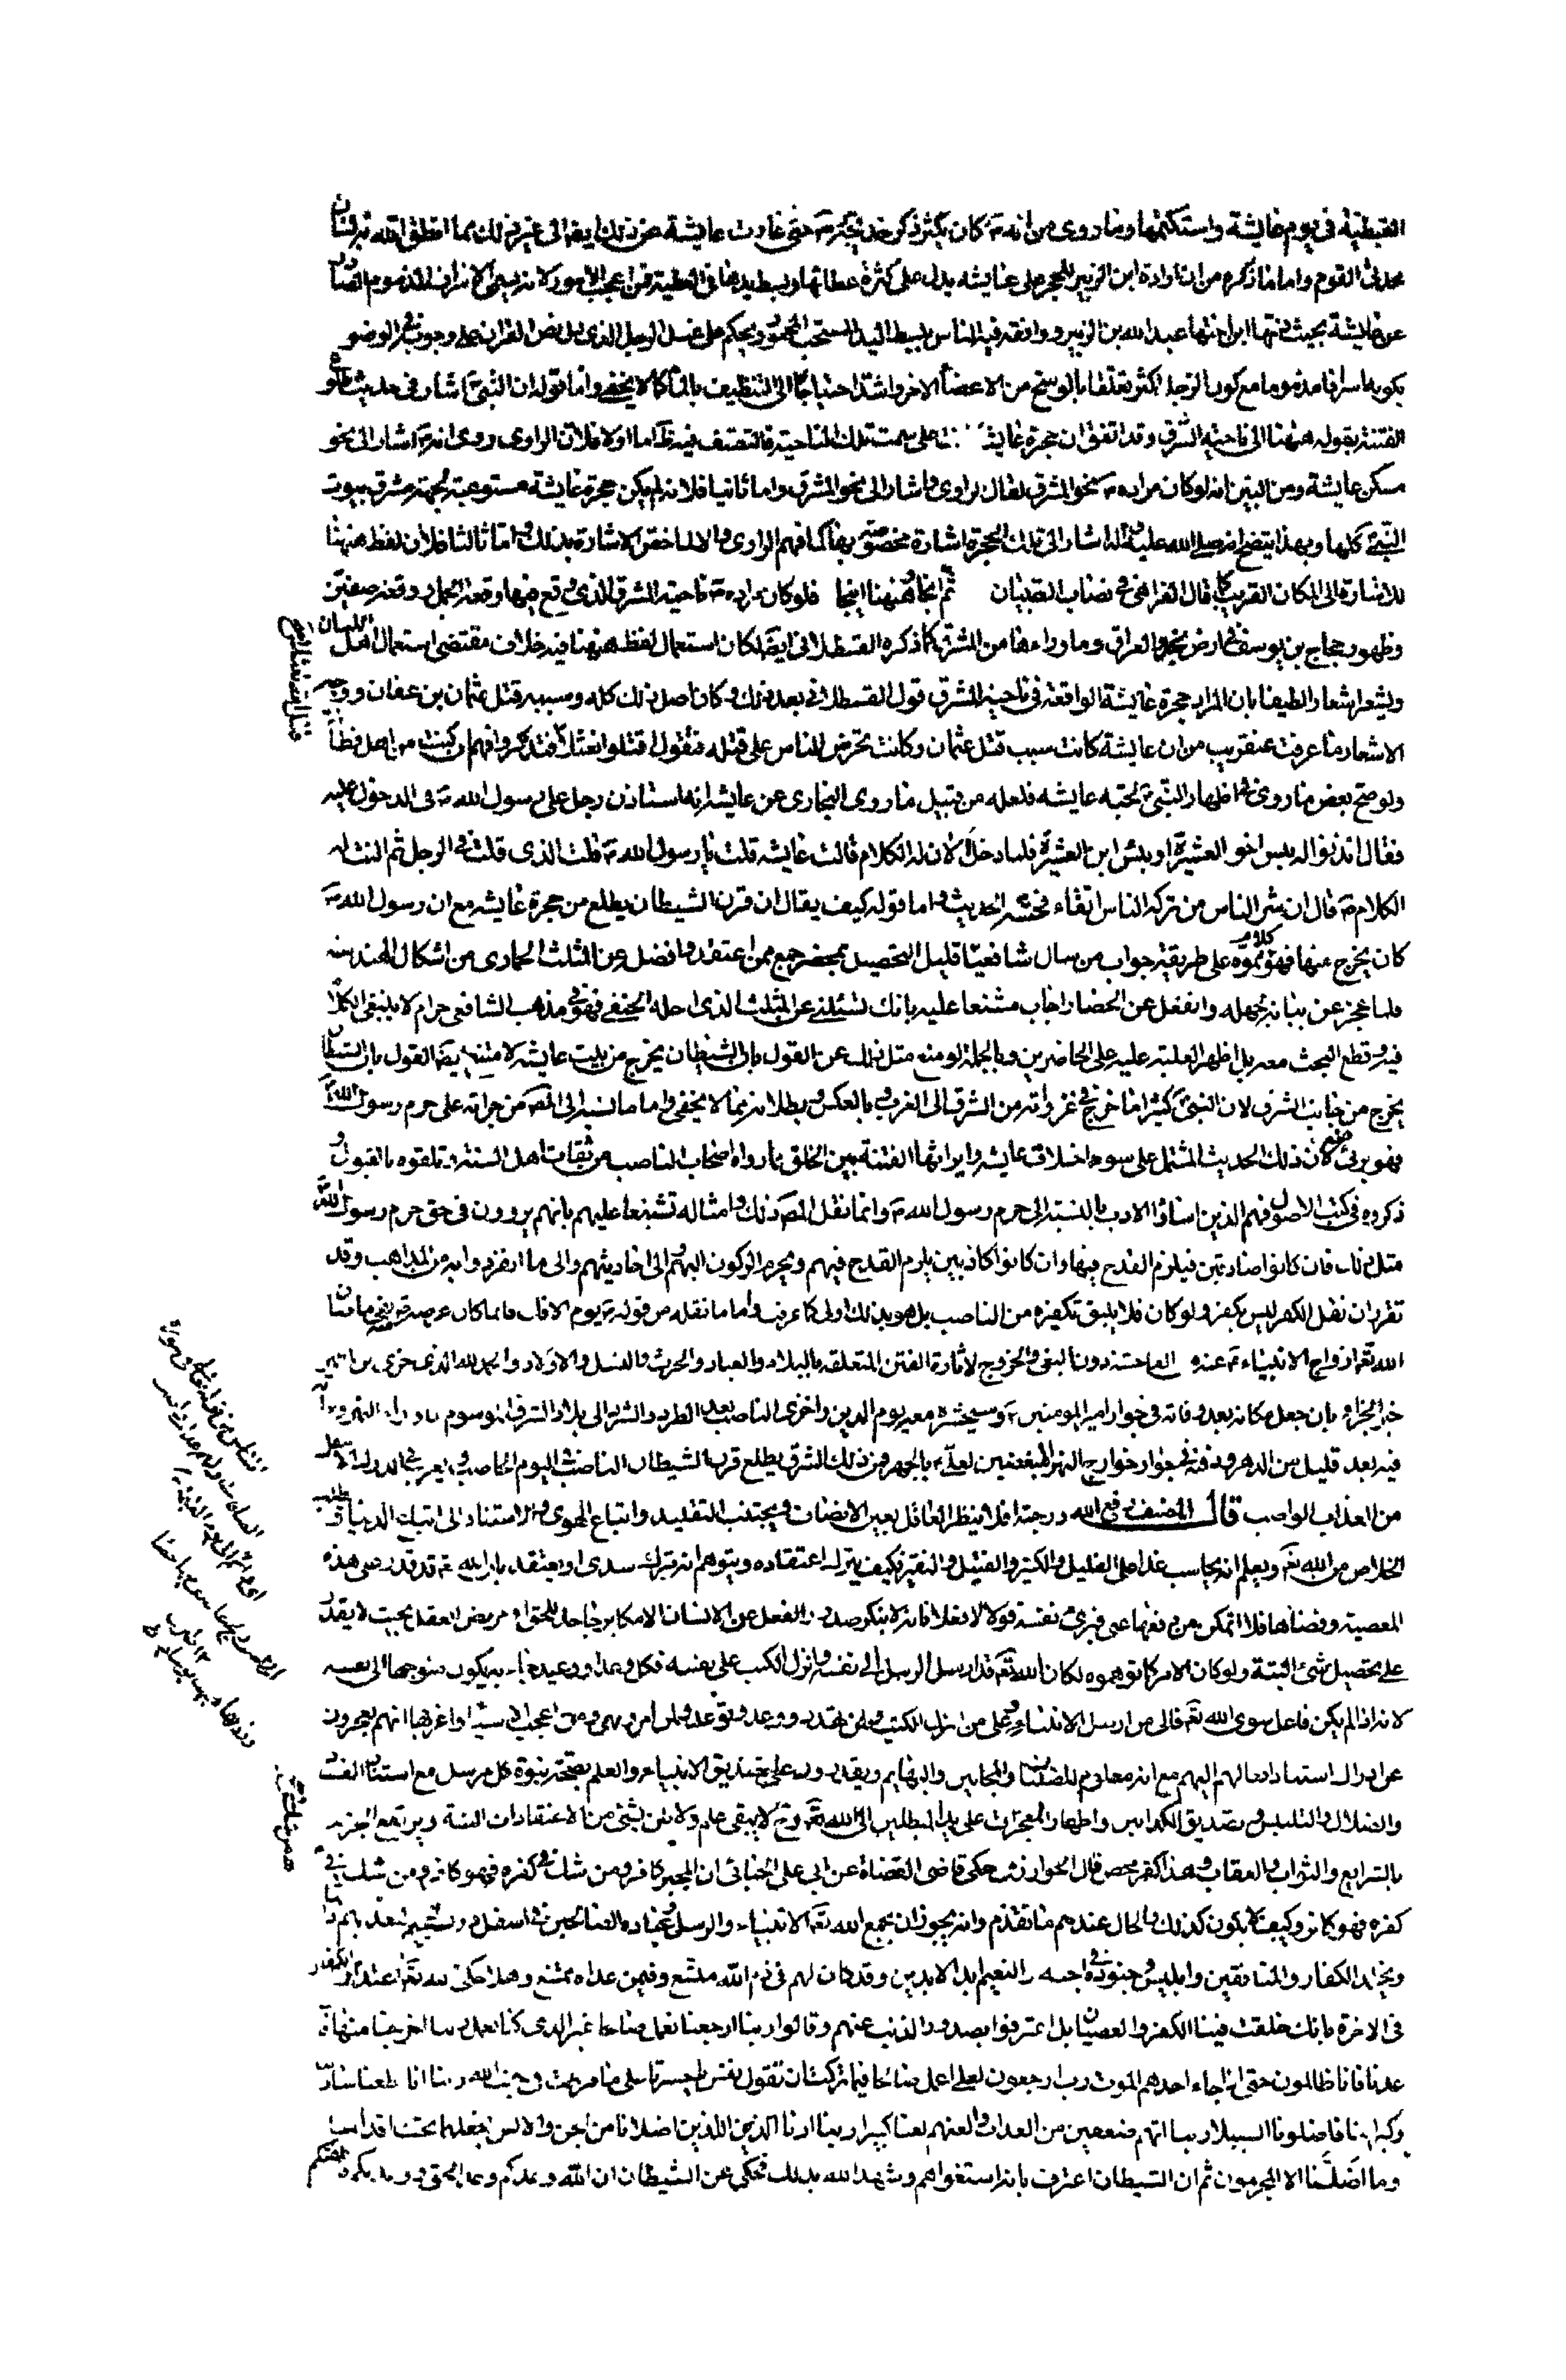 القبطية في يوم عايشة واستكتمها وما روى من انه ص كان يكثر ذكر خديجة حتى غارت عايشة عن ذلك ايضا الى غير ذلك مما انطق الله به لسان
محدثي القوم واما ما ذكره من ان ارادة ابن الزبير للحجر على عايشه يدل على كثرة عطائها وبسط يدها في العطية فمن اعجب الامور لانه يسمى الاسراف المذموم الصادر
عن عايشة بحيث ذمها ابن اختها عبد الله بن الزبير ووافقه فيه الناس ببسط اليد المستحب المحمود ويحكم على غسل الرجل الذي دل نص القران على وجوبه في الوضو
بكونه اسرافا مذموما مع كون الرجل اكثر تعلقا بالوسخ من الاعضاء الاخر واشد احتياجا الى التنظيف بالماء كما لا يخفى واما قوله ان النبي ص اشار في حديث طلوع
الفتنة بقوله ههنا الى ناحية الشرق وقد اتفق ان حجرة عايشة على سمت تلك الناحية فالتعسف فيه ظ اما اولا فلان الراوي روى انه ص اشار الى نحو
مسكن عايشة ومن البين انه لو كان مراده ص نحو المشرق لقال الراوي فاشار الى نحو المشرق واما ثانيا فلانه لم يكن حجرة عايشة مستوعبة لجهة مشرق بيوت
النبي ص كلها وبهذا يتضح انه صلى الله عليه واله اشار الى تلك الحجرة اشارة مخصوصة بها كما فهم الراوي والا لما خص الاشارة بذلك واما ثالثا فلان لفظ ههنا
للاشارة الى المكان القريب كما قال الفراهي في نصاب الصبيان ثم انجا ههنا اينجا فلو كان مراده ص ناحية المشرق الذي وقع فيها وقعة الجمل ووقعة صفين
وظهور حجاج بن يوسف في ارض نجد والعراق وما وراءها من المشرق كما ذكره القسطلاني ايضا لكان استعمال لفظ ههنا فيه خلاف مقتضى استعمال اهل اللسان
ويشعر اشعارا لطيفا بان المراد حجرة عايشة الواقعة في ناحية المشرق قول القسطلاني بعد ذلك وكان اصل ذلك كله وسببه قتل عثمان بن عفان ووجه
الاشعار ما عرفت عنقريب من ان عايشة كانت سبب قتل عثمان وكانت تحرض الناس على قتله فتقول اقتلوا نعثلا فتذكر وافهم ان كنت من اهل
ولو صح بعض ما روى في اظهار النبي ص لحبه عايشه فلعله من قبيل ما روى البخاري عن عايشه انه استاذن رجل على رسول الله ص في الدخول عليه
فقال ائذنوا له بئس اخو العشيرة او بئس ابن العشيرة فلما دخل الان له الكلام قالت عايشه قلت يا رسول الله ص قلت الذي قلت في الرجل ثم النت له
الكلام ص قال ان شر الناس من تركه الناس اتقاء فحشه الحديث واما قوله كيف يقال ان قرن الشيطان يطلع من حجرة عايشه مع ان رسول الله ص
كان يخرج منها فهو كلام مموه على طريقة جواب من سال شافعيا قليل التحصيل بمحضر جمع ممن اعتقدوا فضله عن المثلث الحمارى من اشكال الهندسة
فلما عجز عن بيانه لجهله وانفعل عن الحضار اجاب مشنعا عليه بانك تسئلني عن المثلث الذي احله الحنفي فهو في مذهب الشافعي حرام لا ينبغي الكلام
فيه وقطع البحث معه بل اظهر الغلبة عليه على الحاضرين وبالجملة لو منع مثل ذلك عن القول بان الشيطان يخرج من بيت عايشه لامتنع ايضا القول بان الشيطان
يخرج من جانب الشرق لان النبي ص كثيرا ما خرج في غزواته من الشرق الى الغرب وبالعكس وبطلانه مما لا يخفى واما ما نسبه الى المص من جراته على حرم رسول الله
فهو برئ منه لان ذلك الحديث المشتمل على سوء اخلاق عايشه وايرائها الفتنة بين الخلق ما رواه اصحاب الناصب من ثقات اهل السنة وتلقوه بالقبول و
ذكروه في كتب الاصول فهم الذين اساؤا الادب بالنسبة الى حرم رسول الله ص وانما نقل المص ذلك وامثاله تشنيعا عليهم بانهم يروون في حق حرم رسول الله
مثل ذلك فان كانوا صادقين فيلزم القدح فيها وان كانوا كاذبين يلزم القدح فيهم ويحرم الركون اليهم والى احاديثهم والى ما انفردوا به من المذاهب وقد
تقرر ان نقل الكفر ليس بكفر ولو كان فلا يليق تكفيره من الناصب بل هو بذلك اولى كما عرفت واما ما نقله من قوله ص يوم الافك فانما كان
الله تع ازواج الانبياء ع عنه الفاحشة دون البغي والخروج لاثارة الفتن المتعلقه بالبلاد والعباد والحرث والنسل والاولاد والحمد لله الذي
بان جعل مكانه بعد وفاته في جوار امير المومنين ع وسيحشره معه يوم الدين واخزى الناصب بعد الطرد والشرد الى بلاد الشرق الموسوم بما وراء النهر
فيه بعد قليل من الدهر ودفنه في جوار خوارج النهر المبغضين لعلي ع بالجهر فمن ذلك الشرق يطلع قرن الشيطان الناصب اليوم
من العذاب الواصب قال المصنف رفع الله درجته افلا ينظر العاقل بعين الانصاف ويجتنب التقليد واتباع الهوى والاستناد الى اتباع الدنيا ويطلب
الخلاص من الله تع ويعلم انه يحاسب غدا على القليل والكثير والفتيل والنقير فكيف يترك اعتقاده ويتوهم انه يترك سدى او يعتقد بان الله تع قد قدر هذه
المعصية وقضاها فلا اتمكن من دفعها عني فيبرئ نفسه قولا لا فعلا فانه لا ينكر صدور الفعل عن الانسان الا مكابر جاحد للحق او مريض العقل بحيث لا يقدر
على تحصيل شئ البتة ولو كان الامر كما توهموه لكان الله تع قد ارسل الرسل الى نفسه وانزل الكتب على نفسه فكل وعد ووعيد جاء به يكون متوجها الى نفسه
لانه اذا لم يكن فاعل سوى الله تع فالى من ارسل الانبياء وعلى من انزل الكتب ولمن تهدد ووعد وتوعد ولمن امر ونهى ومن اعجب الاشياء واغربها انهم يعجزون
عن ادراك استناد افعالهم اليهم مع انه معلوم للصبيان والمجانين والبهايم ويقدرون على تصديق الانبياء والعلم بصحة نبوة كل مرسل مع استناد الفساد
والضلال والتلبيس وتصديق الكذابين واظهار المعجزات على يد المبطلين الى الله تع وح لا يبقى علم ولا ظن بشئ من الاعتقادات البتة ويرتفع الجزم
بالشرايع والثواب والعقاب وهذا كفر محض قال الخوارزمي حكى قاضي القضاة عن ابي علي الجبائي ان المجبر كافر ومن شك في كفره فهو كافر ومن شك في
كفره فهو كافر وكيف لا يكون كذلك والحال عندهم ما تقدم وانه يجوز ان يجمع الله تع الانبياء والرسل وعباده الصالحين في اسفل درك الجحيم يعذبهم دائما
ويخلد الكفار والمنافقين وابليس وجنوده في الجنة والنعيم ابد الابدين وقد كان لهم في ذم الله متسع وفيمن عداه ممتنع وهلا حكى الله تع اعتذار الكفار
في الاخرة بانك خلقت فينا الكفر والعصيان بل اعترفوا بصدور الذنب عنهم وقالوا ربنا ارجعنا نعمل صالحا غير الذي كنا نعمل ربنا اخرجنا منها فان
عدنا فانا ظالمون حتى اذا جاء احدهم الموت رب ارجعون لعلي اعمل صالحا فيما تركت ان تقول نفس يا حسرتا على ما فرطت في جنب الله ربنا انا اطعنا سادتنا
وكبراءنا فاضلونا السبيلا ربنا اتهم ضعفين من العذاب والعنهم لعنا كبيرا ربنا ارنا الذين اللذين اضلانا من الجن والانس نجعلهما تحت اقدامنا
وما اضلنا الا المجرمون ثم ان الشيطان اعترف بانه استغواهم وشهد الله بذلك فحكى عن الشيطان ان الله وعدكم وعد الحق ووعدتكم